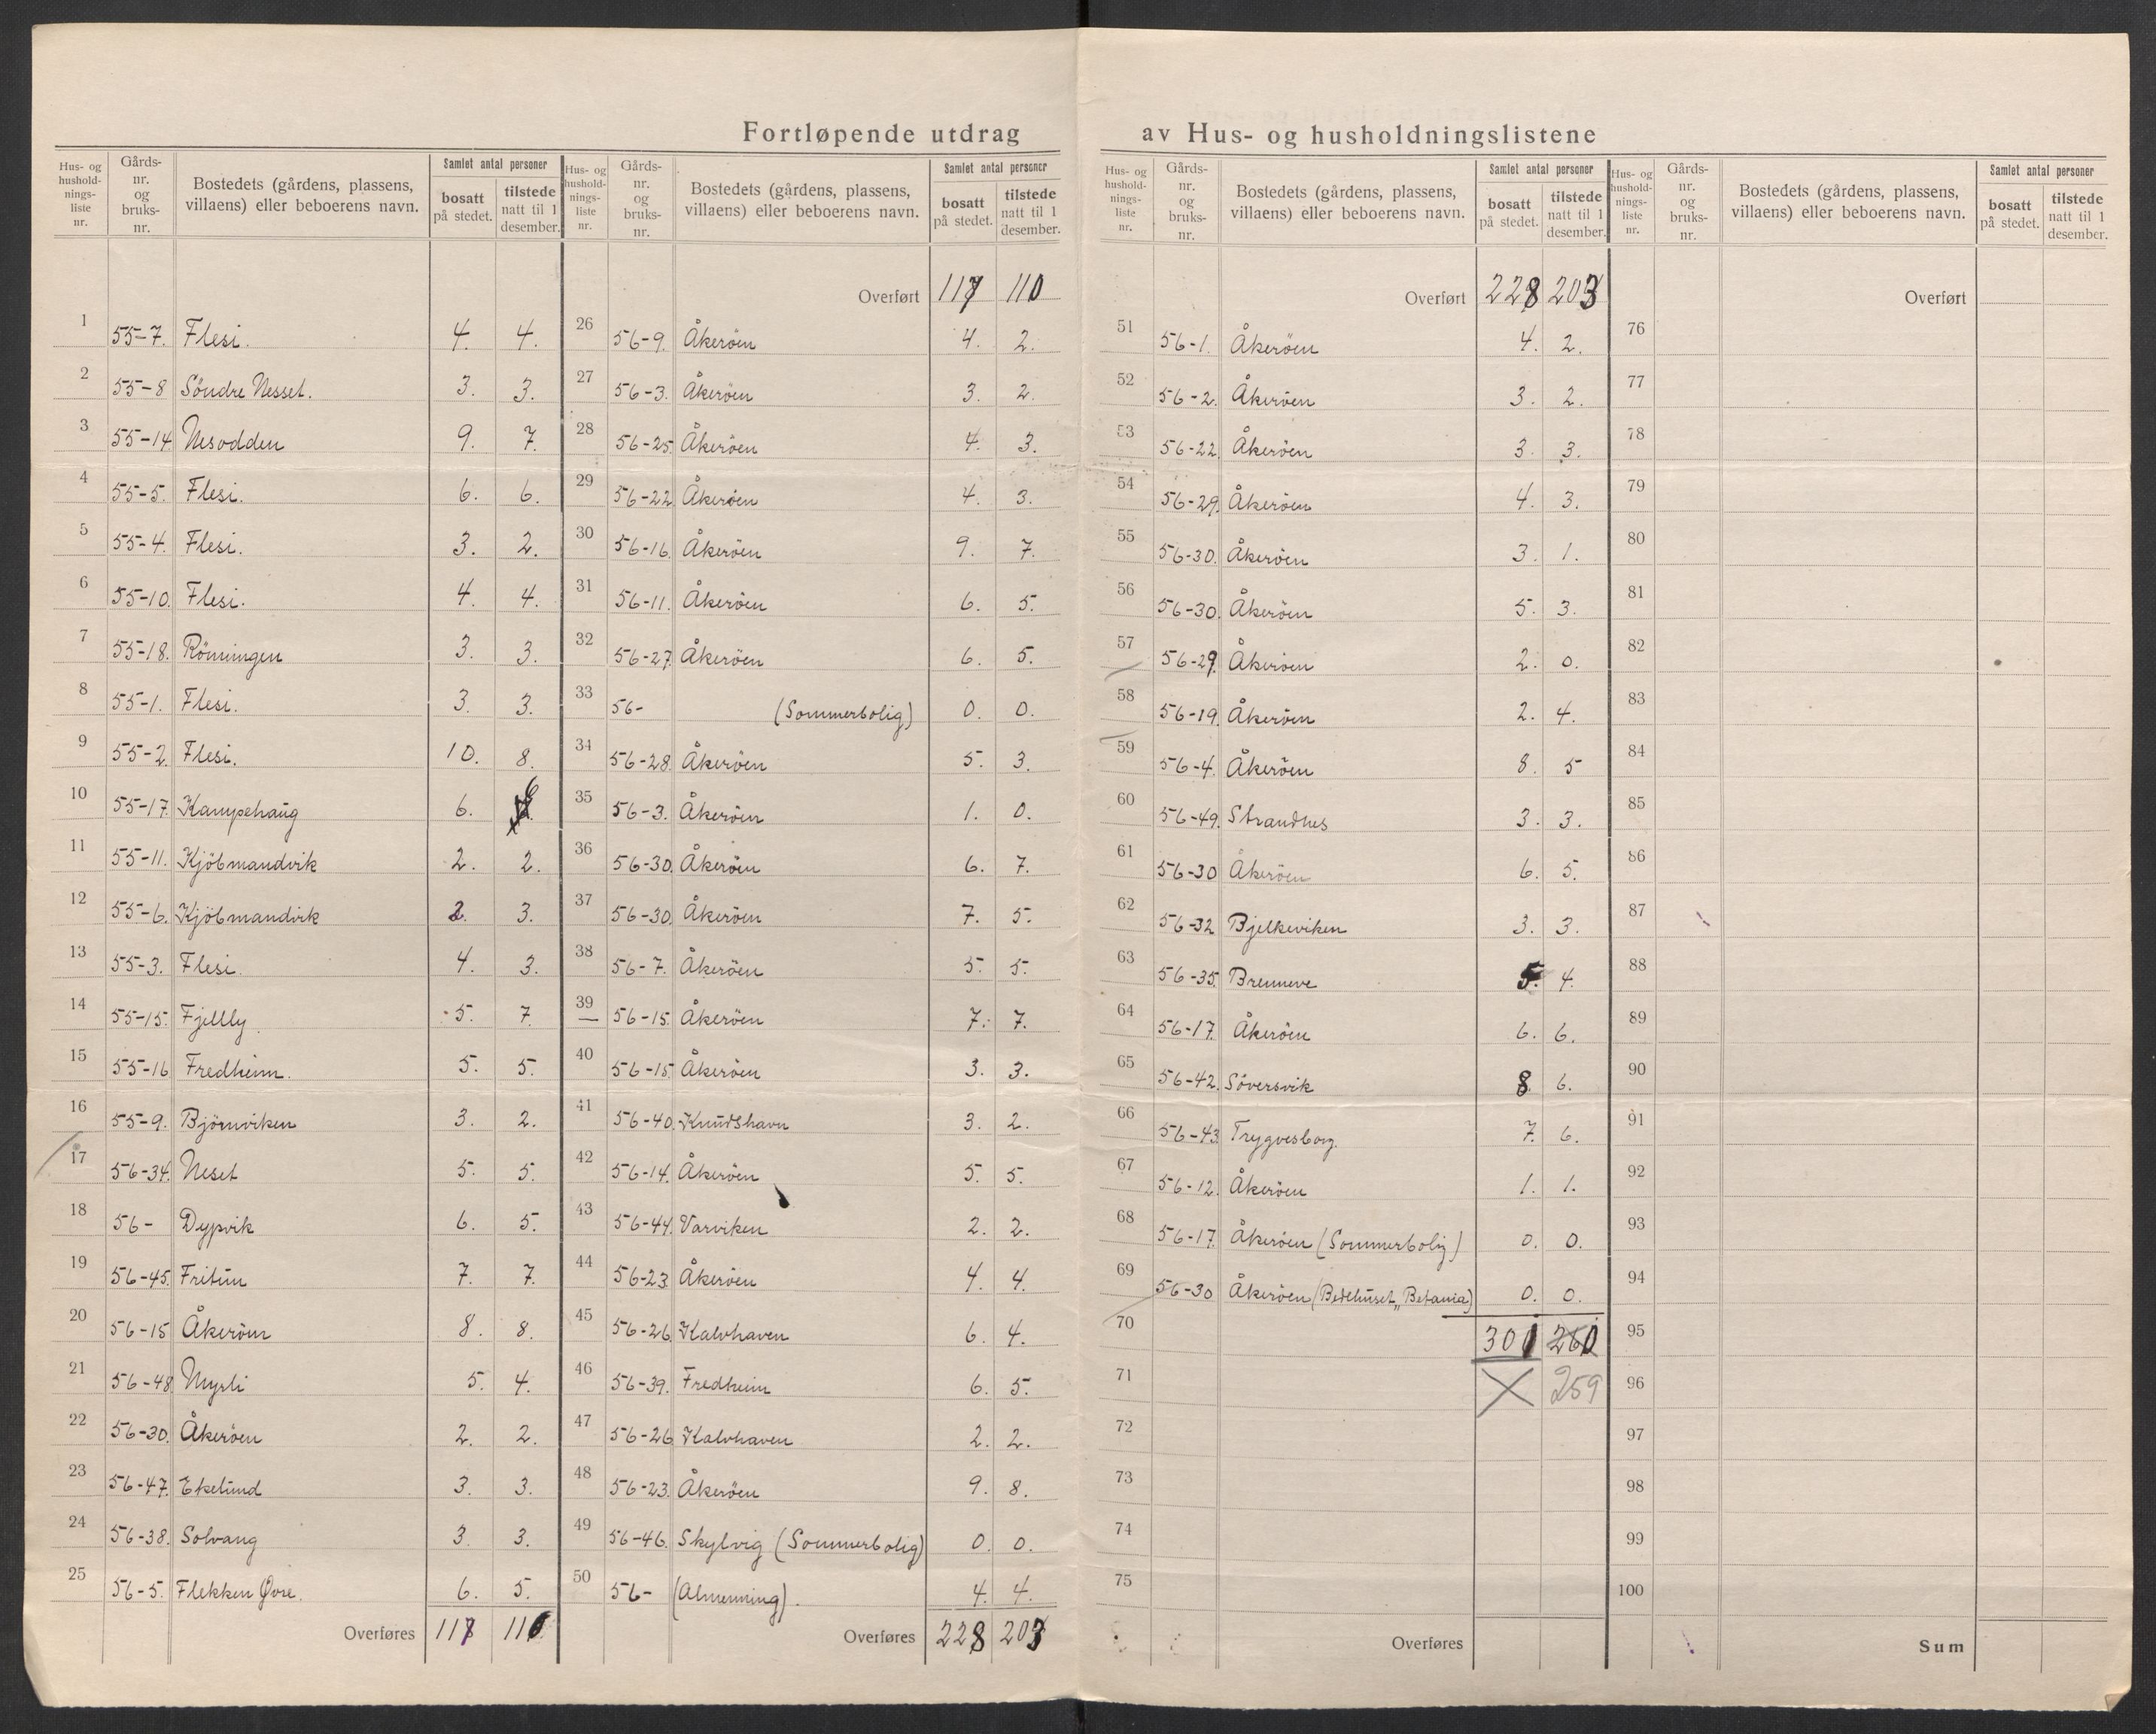 Fortløpende utdrag av Hus- og husholdningslistene
Hus- og husholdnings-liste nr. | Gårds-nr. og bruks-nr. | Bostedets (gårdens, plassens, villaens) eller beboerens navn. | Samlet antal personer | bosatt på stedet. | tilstede natt til 1 desember.
1 55-7. Flesi. 4. 4.
2 55-8 Söndre Nesset. 3. 3.
3 55-14 Nesodden 9. 7.
4 55-5. Flesi. 6. 6.
5 55-4. Flesi. 3. 2.
6 55-10. Flesi. 4. 4.
7 55-18. Rönningen 3. 3.
8 55-1. Flesi. 3. 3.
9 55-2. Flesi. 10. 8.
10 55-17. Kampehaug 6. 6
11 55-11. Kjöbmandvik 2. 2.
12 55-6. Kjöbmandvik 2. 3.
13 55-3. Flesi. 4. 3.
14 55-15. Fjellly. 5. 7.
15 55-16 Fredheim. 5. 5.
16 55-9. Björnviken 3. 2.
17 56-34. Neset 5. 5.
18 56- Dypvik 6. 5.
19 56-45. Fritun 7. 7.
20 56-15 Åkeröen 8. 8.
21 56-48 Myrli 5. 4.
22 56-30. Åkeröen 2. 2.
23 56-47. Ekelund 3. 3.
24 56-38. Solvang 3. 3.
25 56-5. Flekken Øvre. 6. 5.
Overføres 117 110
Hus- og husholdnings-liste nr. | Gårds-nr. og bruks-nr. | Bostedets (gårdens, plassens, villaens) eller beboerens navn. | Samlet antal personer | bosatt på stedet. | tilstede natt til 1 desember.
Overført 117 110
26 56-9. Åkeröen 4. 2.
27 56-3. Åkeröen 3. 2.
28 56-25. Åkeröen 4. 3.
29 56-22 Åkeröen 4. 3.
30 56-16. Åkeröen 9. 7.
31 56-11. Åkeröen 6. 5.
32 56-27. Åkeröen 6. 5.
33 56- (Sommerbolig) 0. 0.
34 56-28. Åkeröen 5. 3.
35 56-3. Åkeröen 1. 0.
36 56-30. Åkeröen 6. 7.
37 56-30. Åkeröen 7. 5.
38 56-7. Åkeröen 5. 5.
39 56-15. Åkeröen 7. 7.
40 56-15. Åkeröen 3. 3.
41 56-40. Knudshavn 3. 2.
42 56-14. Åkeröen 5. 5.
43 56-44. Varviken 2. 2.
44 56-23 Åkeröen 4. 4.
45 56-26 Kalvhaven 6. 4.
46 56-39. Fredheim 6. 5.
47 56-26 Kalvhaven 2. 2.
48 56-23. Åkeröen 9. 8.
49 56-46. Skylvig (Sommerbolig) 0. 0.
50 56- (Almenning). 4. 4.
Overføres 228 203
Hus- og husholdnings-liste nr. | Gårds-nr. og bruks-nr. | Bostedets (gårdens, plassens, villaens) eller beboerens navn. | Samlet antal personer | bosatt på stedet. | tilstede natt til 1 desember.
Overført 228 203
51 56-1. Åkeröen 4. 2.
52 56-2. Åkeröen 3. 2.
53 56-22. Åkeröen 3. 3.
54 56-29. Åkeröen 4. 3.
55 56-30. Åkeröen 3. 1.
56 56-30. Åkeröen 5. 3.
57 56-29. Åkeröen 2. 0.
58 56-19. Åkeröen 2. 4.
59 56-4. Åkeröen 8. 5
60 56-49. Strandnes 3. 3.
61 56-30 Åkeröen 6. 5.
62 56-32 Bjelkeviken 3. 3.
63 56-35. Brenneve 5. 4.
64 56-17. Åkeröen 6. 6.
65 56-42. Söversvik 8 6.
66 56-43. Trygvesborg. 7. 6.
67 56-12. Åkeröen 1. 1.
68 56-17. Åkeröen (Sommerbolig) 0. 0.
69 56-30 Åkeröen (Bedehuset „Betania) 0. 0.
70 301 260
71 259
72
73
74
75
Overføres
Hus- og husholdnings-liste nr. | Gårds-nr. og bruks-nr. | Bostedets (gårdens, plassens, villaens) eller beboerens navn. | Samlet antal personer | bosatt på stedet. | tilstede natt til 1 desember.
Overført
76
77
78
79
80
81
82
83
84
85
86
87
88
89
90
91
92
93
94
95
96
97
98
99
100
Sum